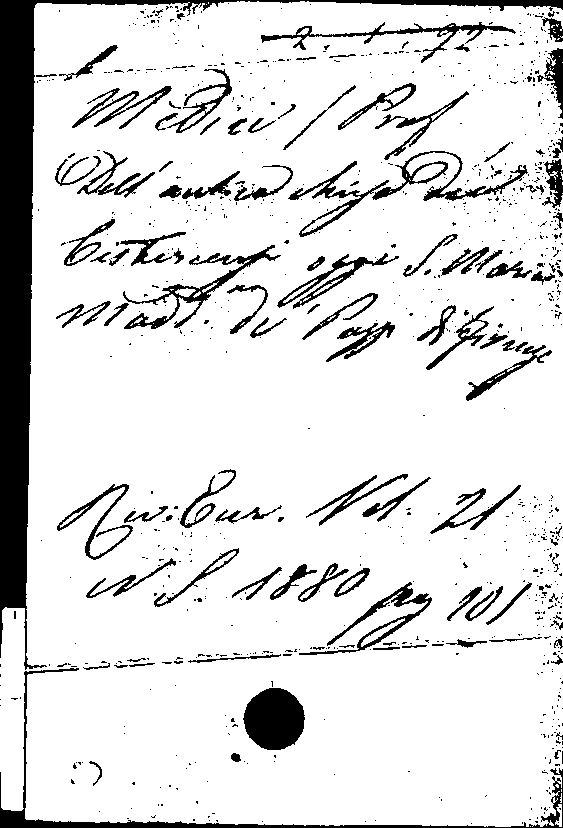 2. 1. 92
Medici / Prof
Dell' antica chiesa dei
Cisterciensi oggi S. Maria
Madd. de' Pazzi di Firenze
Riv: Eur. Vol. 21
N S. 1880 pag 101